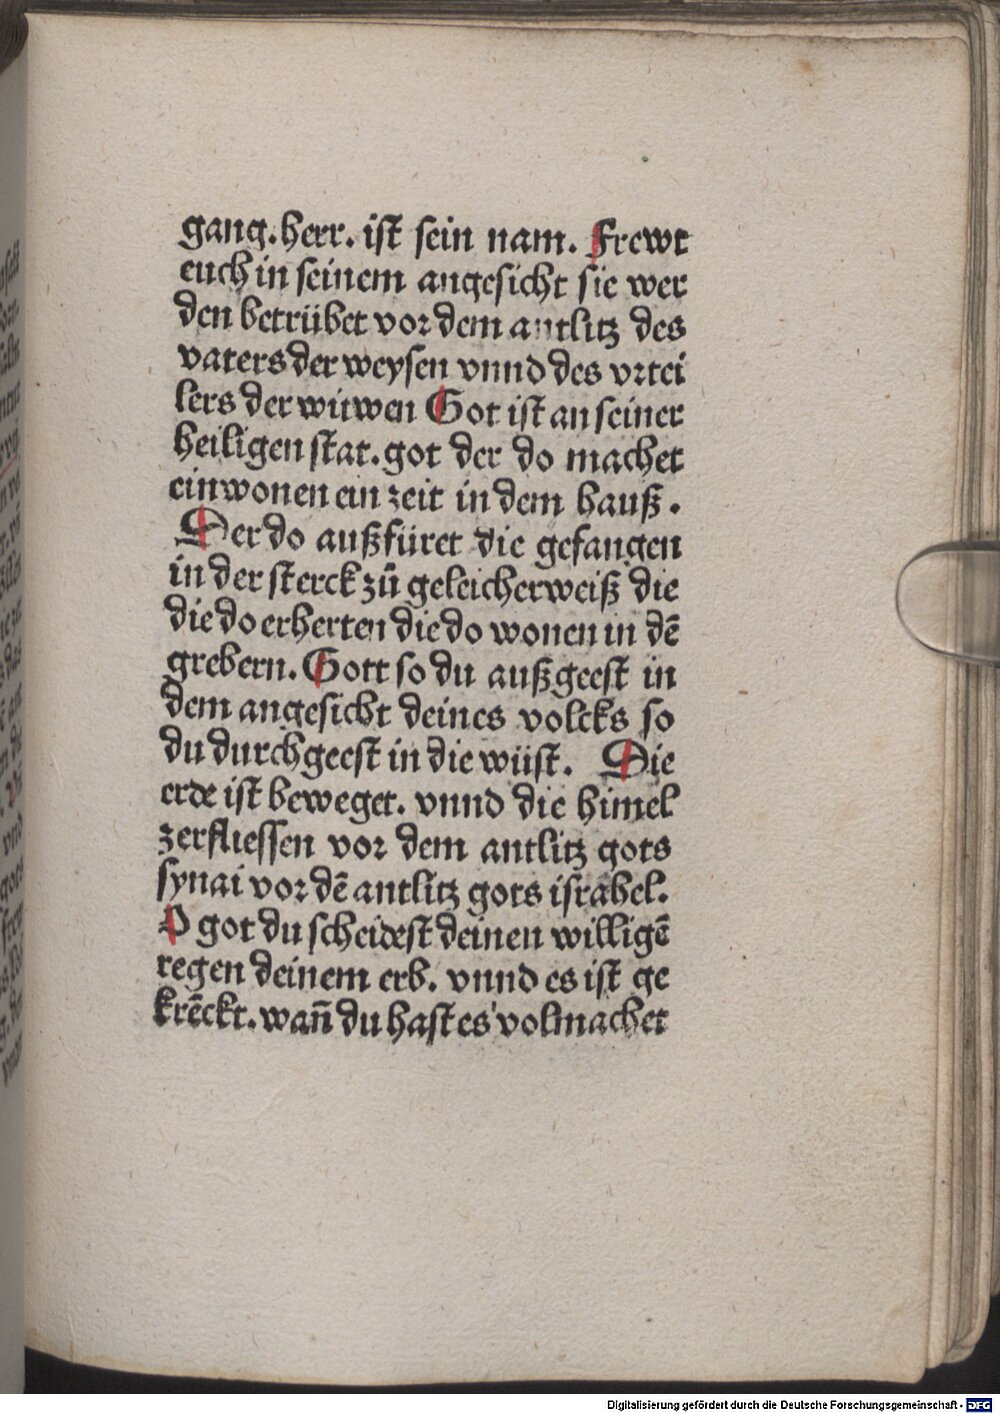 gang. herr. ist sein nam. Frewt
euch in seinem angesicht sie wer
den betrübet vor dem antlitz des
vaters der weysen vnnd des vrtei
lers der witwen Got ist an seiner
heiligen stat. got der do machet
einwonen ein zeit in dem hauß.
Der do außfüret die gefangen
in der sterck zů geleicherweiß die
die do erherten die do wonen in dē
grebern. Gott so du außgeest in
dem angesicht deines volcks so
du durchgeest in die wüst. Die
erde ist beweget. vnnd die himel
zerfliessen vor dem antlitz gots
synai vor dē antlitz gots israhel.
O got du scheidest deinen willigē
regen deinem erb. vnnd es ist ge
krēckt. wañ du hast es volmachet
Digitalisierung gefördert durch die Deutsche Forschungsgemeinschaft - DFG